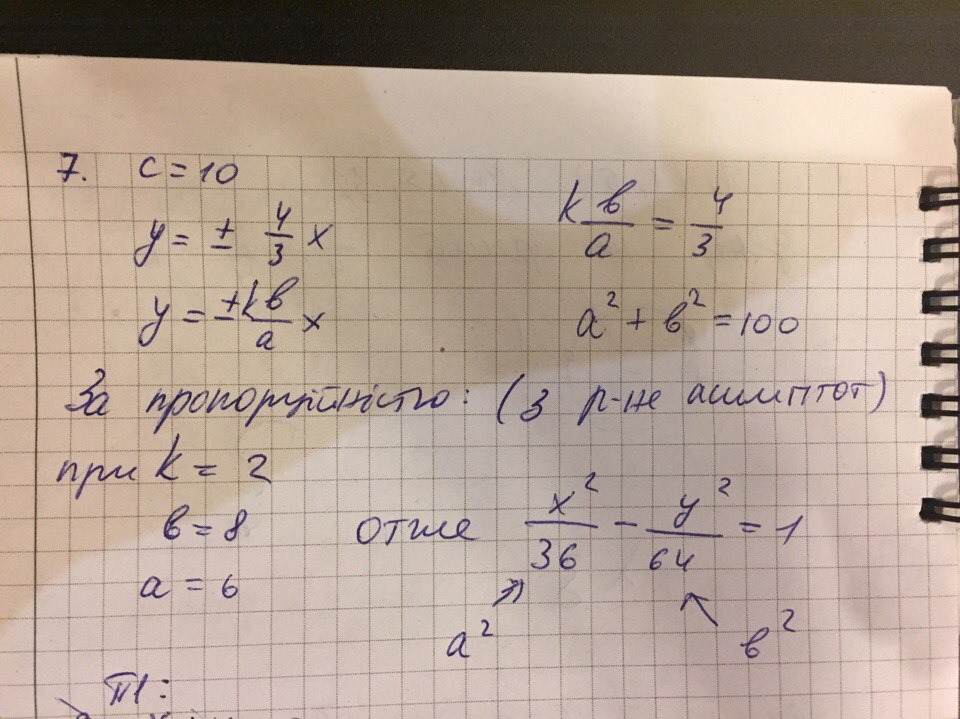 7. c = 10
y = ± 4/3 x
y = ± kв/a x
kв/a = 4/3
a² + в² = 100
За пропорційністю: (з р-не асимптот)
при k = 2
в = 8
a = 6
отже x²/36 - y²/64 = 1
a² в²
П1: